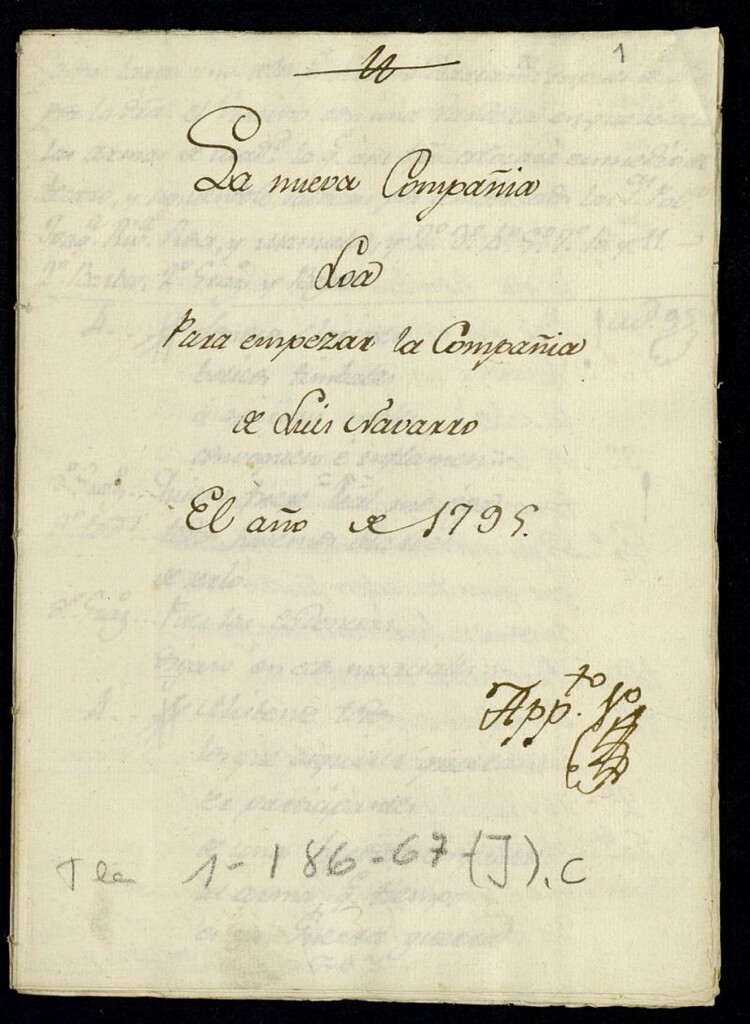 1
La nueva Compañia
Loa
Para empezar la Compañia
de Luis Navarro
El año de 1795.
App.to 1o
Tea 1-186-67 (J), C